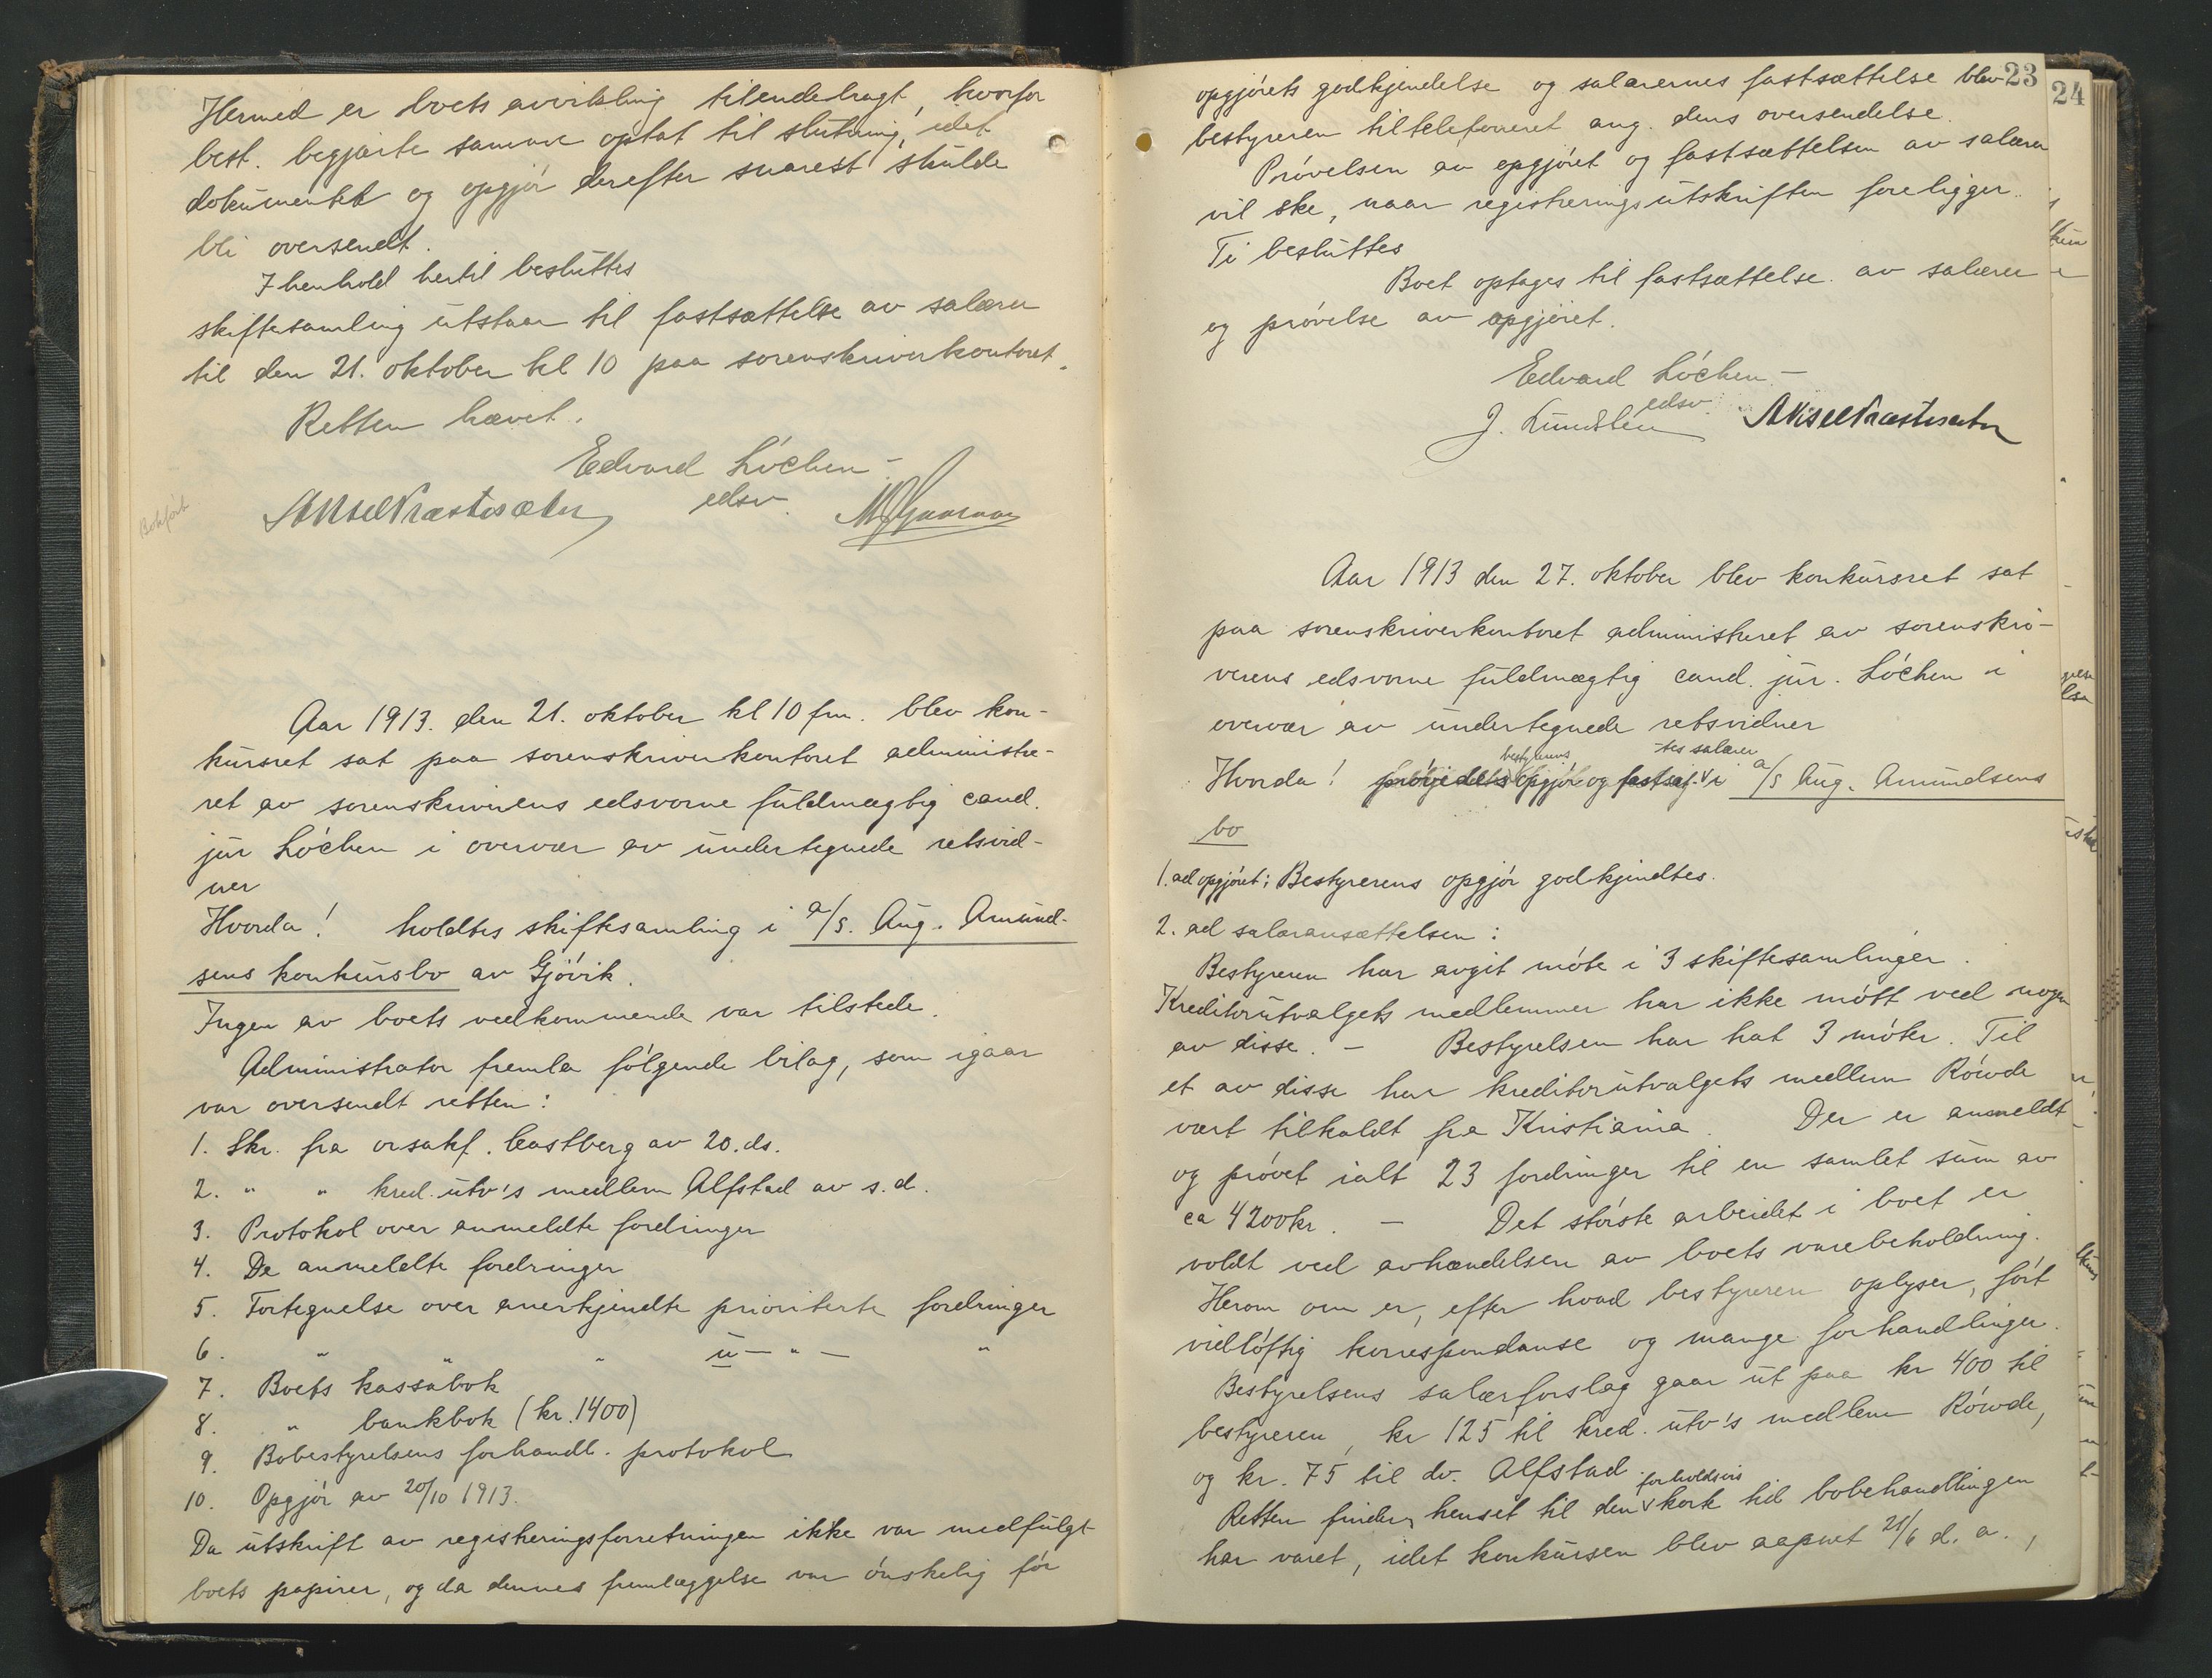 Hermed er boets avvikling tilendebragt, hvorfor
best. begjærte samme optat til slutning, idet
dokumenter og opgjør derefter snarest skulde
bli oversendt.
I henhold hertil besluttes
skiftesamling utstaar til fastsættelse av salærer
til den 21. oktober kl 10 paa sorenskriverkontoret.
Retten hævet.
Edvard Löchen
edsv.
Aksel Præstesæter
Bokført
Aar 1913. den 21. oktober kl 10 fm. blev kon-
kursret sat paa sorenskriverkontoret administre-
ret av sorenskriverens edsvorne fuldmægtig cand.
jur Löchen i overvær av undertegnede retsvid-
ner
Hvorda! holdtes skiftesamling i a/s. Aug. Amund-
sens konkursbo av Gjövik.
Ingen av boets vedkommende var tilstede.
Administrator fremla fölgende bilag, som igaar
var oversendt retten:
1. Skr. fra orsakf. Castberg av 20. ds.
2. " " kred. utv's medlem Alfstad av s. d.
3. Protokol over anmeldte fordringer
4. De anmeldte fordringer
5. Fortegnelse over anerkjendte prioriterte fordringer
6. " " " u — " — "
7. Boets kassabok
8. " bankbok (kr. 1400)
9. Bobestyrelsens forhandl. protokol
10. Opgjör av 20/10 1913.
Da utskrift av registreringsforretningen ikke var medfulgt
boets papirer, og da dennes fremlæggelse var önskelig för
23
24
opgjörets godkjendelse og salærernes fastsættelse blev
bestyreren tiltelefoneret ang. dens oversendelse.
Prövelsen av opgjöret og fastsættelsen av salærer
vil ske, naar registreringsutskriften foreligger.
Ti besluttes
Boet optages til fastsættelse av salærer
og prövelse av opgjöret.
Edvard Löchen
edsv.
J. Lundsten Aksel Præstesæter
Aar 1913 den 27. oktober blev konkursret sat
paa sorenskriverkontoret administreret av sorenskri-
verens edsvorne fuldmægtig cand. jur. Löchen i
overvær av undertegnede retsvidner
bestyrerens tes salærer
Hvorda! prövedes opgjör og fastsat i a/s Aug. Amundsens
bo
1. ad opgjöret: Bestyrerens opgjör godkjendtes.
2. ad salæransættelsen:
Bestyreren har avgit möte i 3 skiftesamlinger.
Kreditorutvalgets medlemmer har ikke mött ved nogen
av disse. — Bestyrelsen har hat 3 möter. Til
et av disse har kreditorutvalgets medlem Röwde
vært tilkaldt fra Kristiania. Der er anmeldt
og prövet ialt 23 fordringer til en samlet sum av
ca 4200 kr. — Det störste arbeidet i boet er
voldt ved avhændelsen av boets varebeholdning.
Herom om er, efter hvad bestyreren oplyser, fört
vidlöftig korrespondanse og mange forhandlinger.
Bestyrelsens salærforslag gaar ut paa kr 400 til
bestyreren, kr 125 til kred. utv's medlem Röwde,
og kr. 75 til do. Alfstad.
forholdsvis
Retten finder, henset til den kork tid bobehandlingen
har varet, idet konkursen blev aapnet 21/6 d. a.,